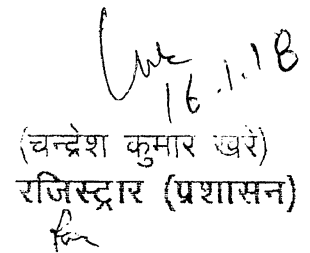 16.1.18
(चन्द्रेश कुमार खरे)
रजिस्ट्रार (प्रशासन)